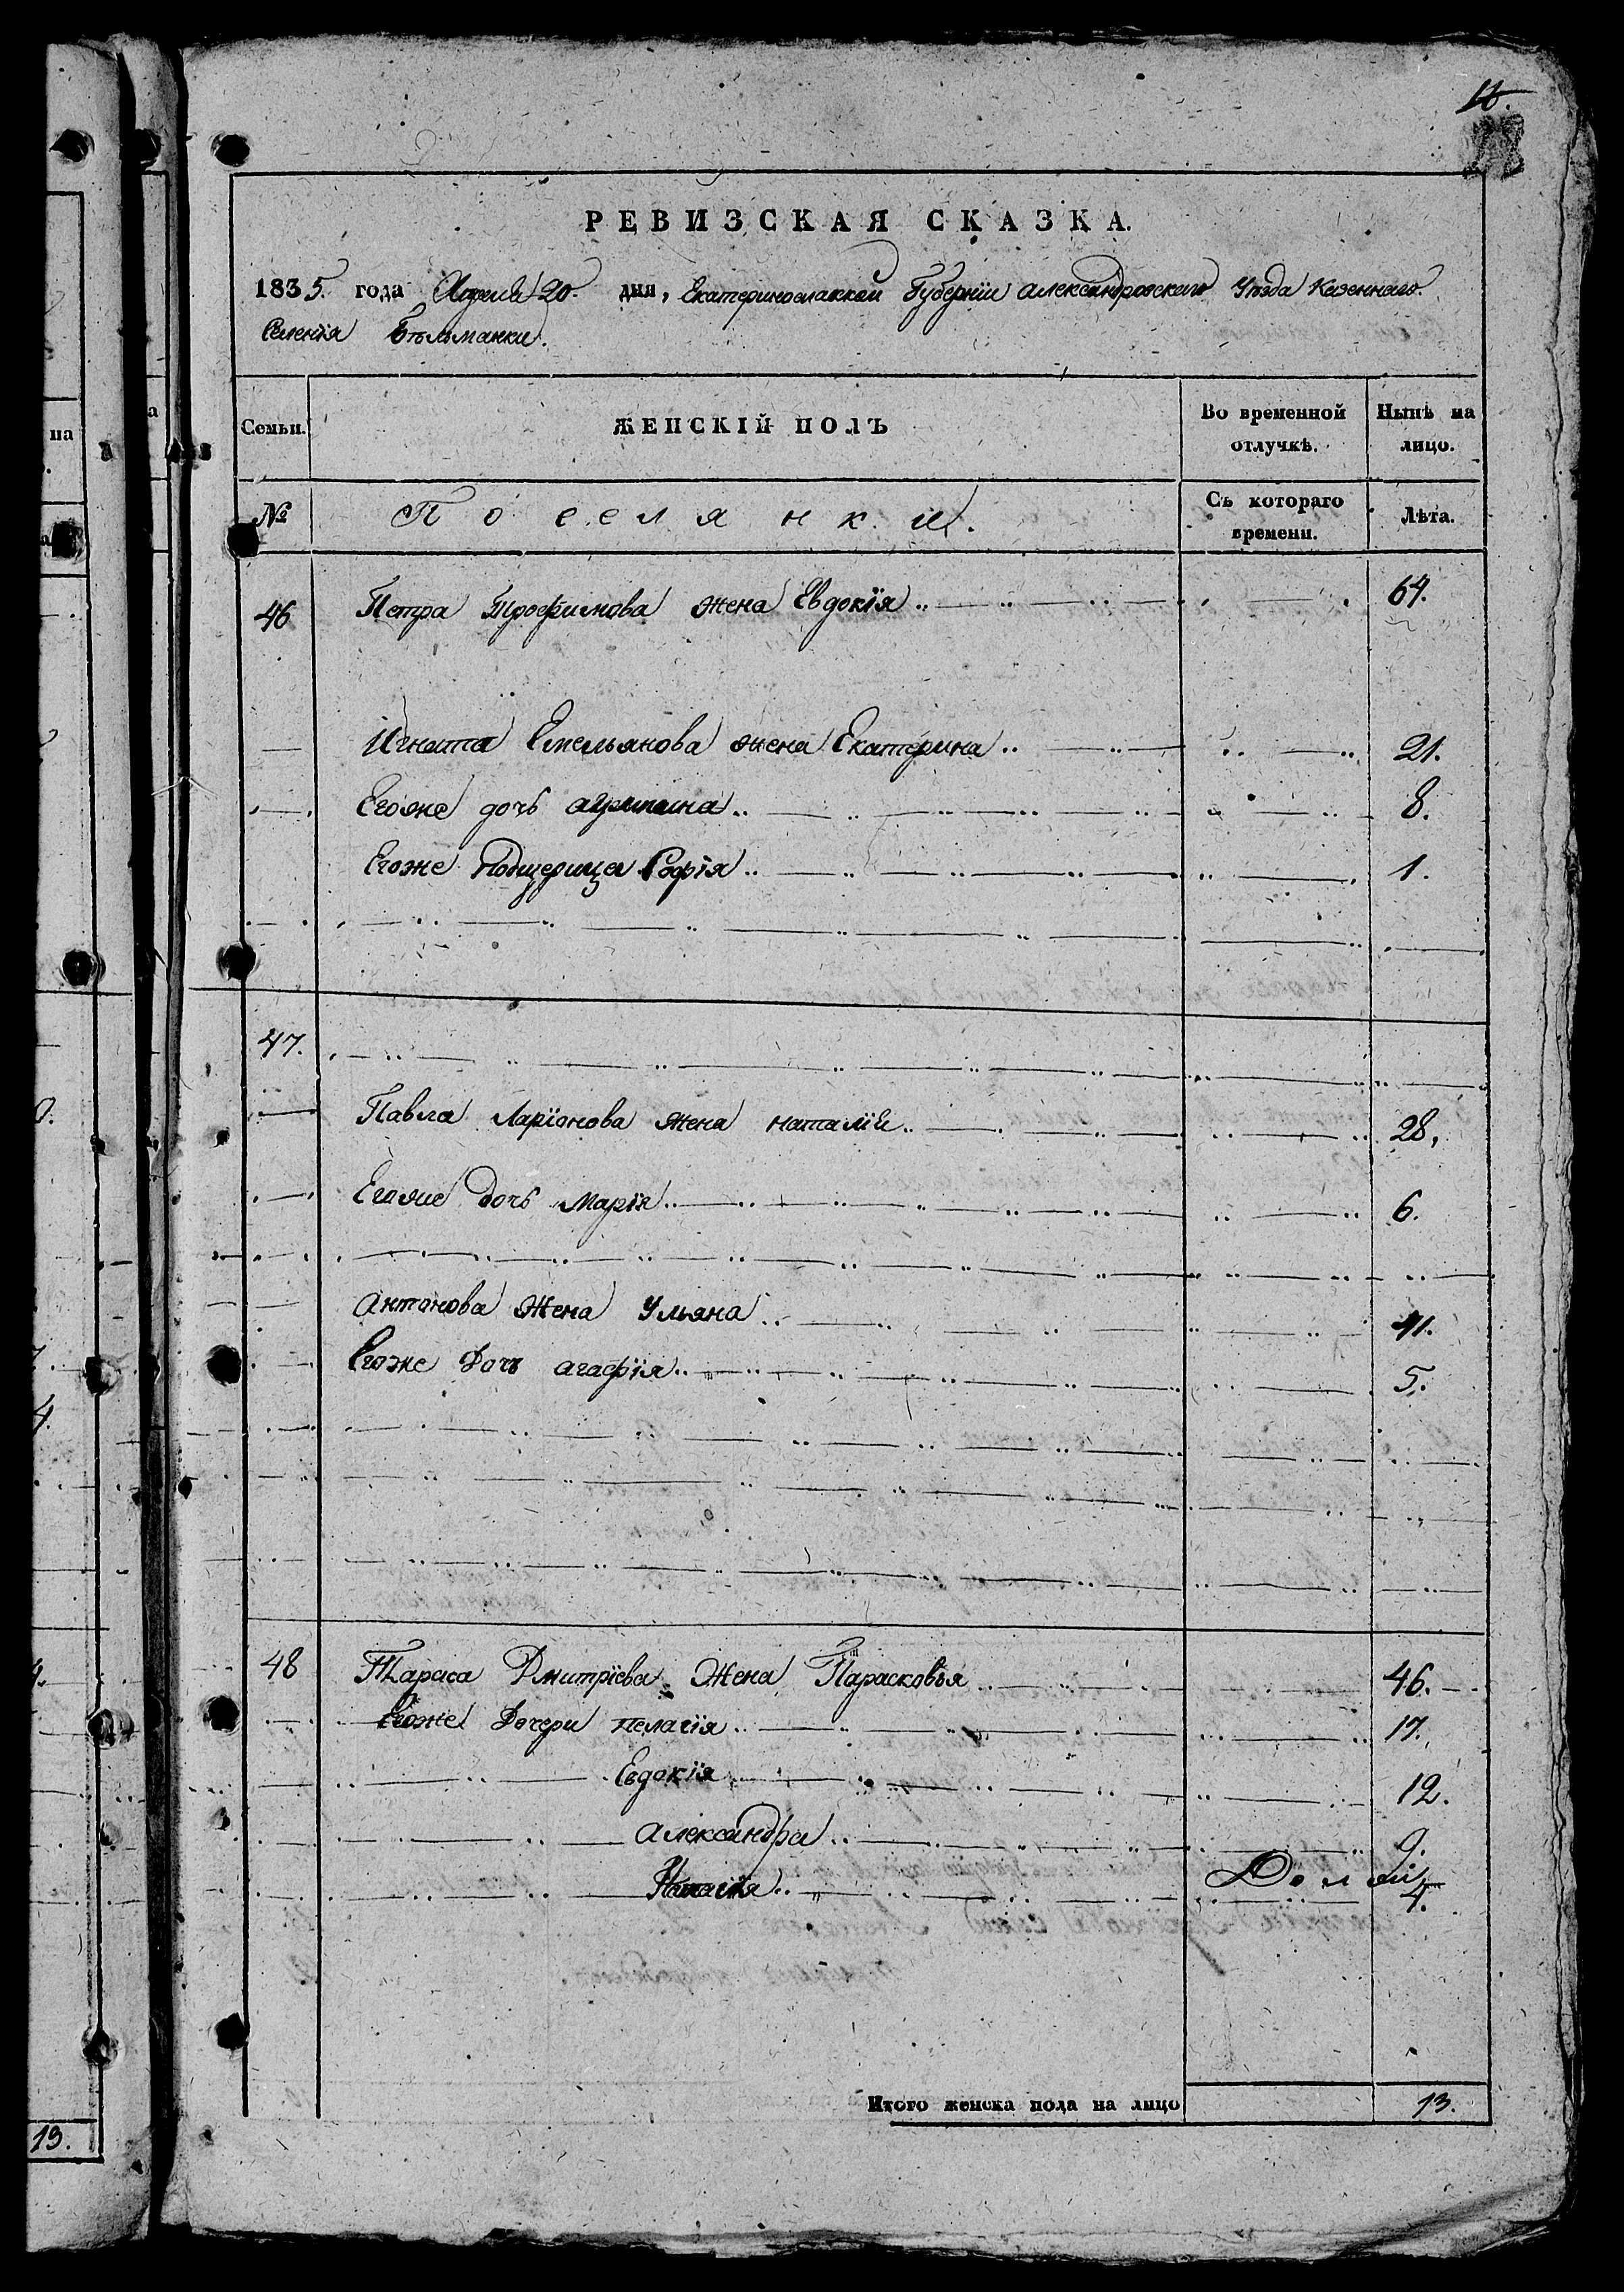 16.
РЕВИЗСКАЯ СКАЗКА.
1835. года Апреля 20. дня, Екатеринославской Губернїи Александровского Уѣзда Казеннаго.
Селенїя Бѣльманки.
Семьи.
ЖЕНСКІЙ ПОЛЪ
Во временной отлучкѣ.
Нынѣ на лицо.
№
Поселянки.
Съ котораго времени.
Лѣта.
46 Петра Трофимова жена Евдокїя 64.
Игната Емельянова жена Екатерина 21.
Егоже дочь агрипина 8.
Егоже Падщерица Софїя 1.
47.
Павла Ларїонова жена наталїи 28.
Егоже дочь марїя 6.
антонова жена Ульяна 41.
Егоже Дочь агафїя 5.
48 Тараса Дмитрїева Жена Парасковья 46.
Егоже Дочери пелагїя 17.
Евдокїя 12.
александра 9.
4.
Итого женска пола на лицо 13.
на
19.